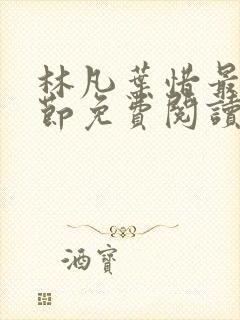 林凡葉惜最
節免費閱讀
酒寶